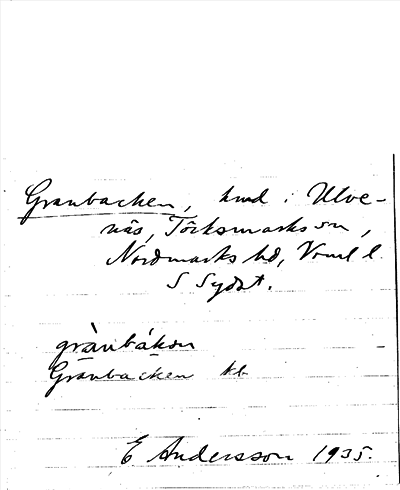 Granbacken, hmd i Ulve-
näs, Töcksmarks sn,
Nordmarks hd, Vrml l.
S Sydöt.
grànbákon
Granbacken kb
E Andersson 1935.